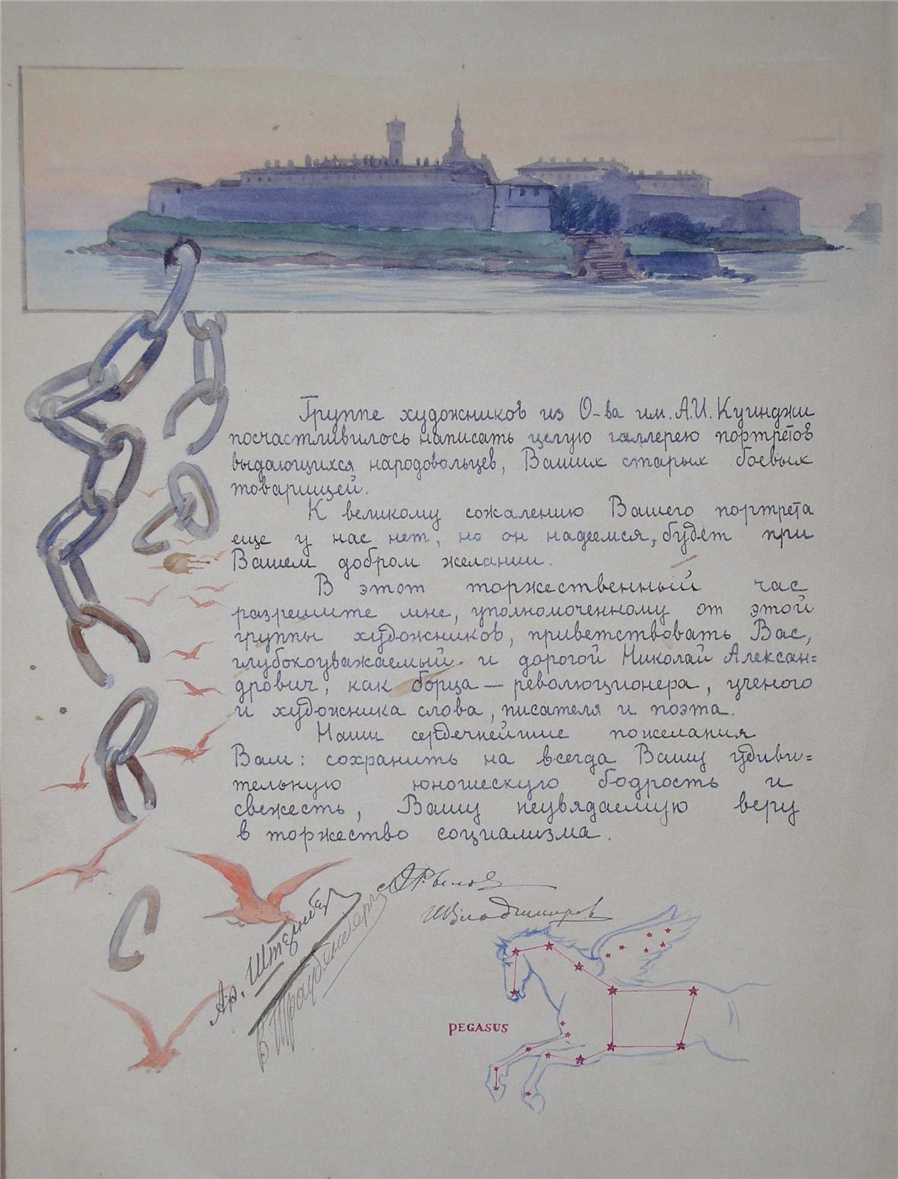 Группе художников из О-ва им. А.И. Куинджи
посчастливилось написать целую галлерею портретов
выдающихся народовольцев, Ваших старых боевых
товарищей.
К великому сожалению Вашего портрета
еще у нас нет, но он надеемся, будет при
Вашем добром желании.
В этот торжественный час
разрешите мне, уполномоченному от этой
группы художников, приветствовать Вас,
глубокоуважаемый и дорогой Николай Алексан=
дрович, как борца — революционера, ученого
и художника слова, писателя и поэта.
Наши сердечнейшие пожелания
Вам: сохранить на всегда Вашу удиви=
тельную юношескую бодрость и
свежесть, Вашу неувядаемую веру
в торжество социализма.
А Рылов
Ар. Штернбер
И Владимиров
PEGASUS